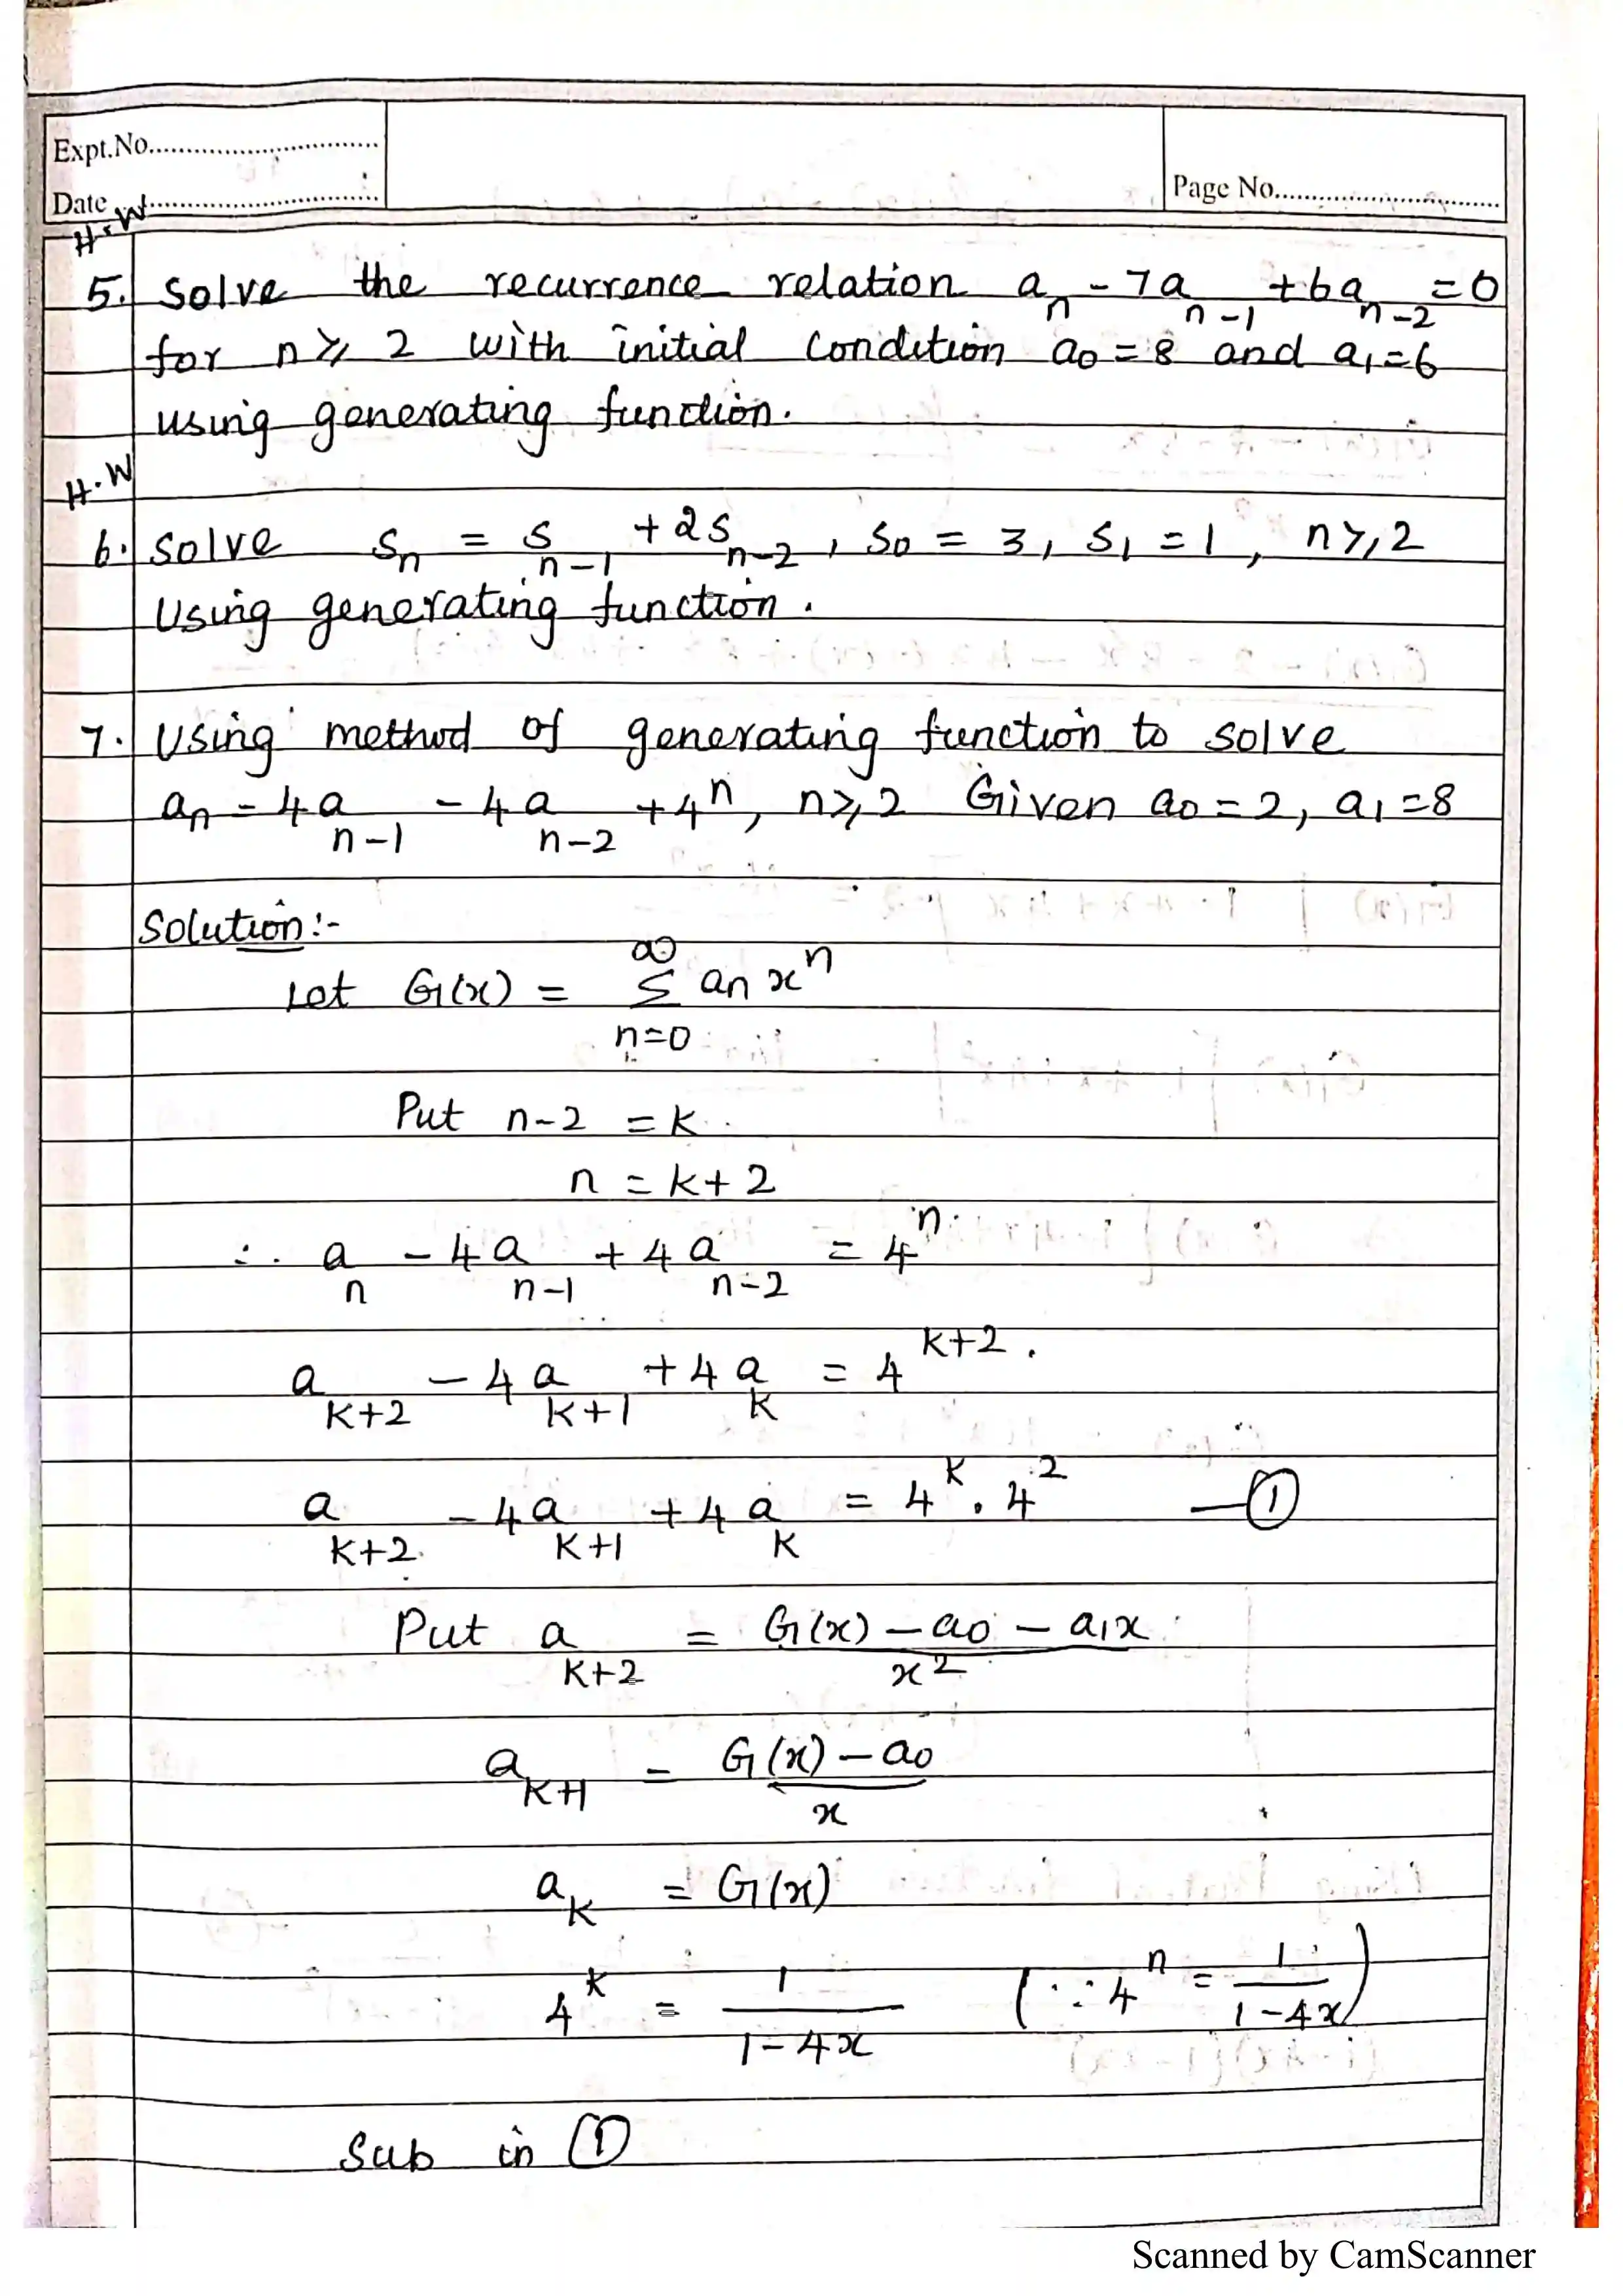 Expt.No.
Date
Page No.
H.W
5. Solve the recurrence relation aₙ - 7aₙ₋₁ + 6aₙ₋₂ = 0
for n ≥ 2 with initial condition a₀ = 8 and a₁ = 6
using generating function.
H.W
6. Solve Sₙ = Sₙ₋₁ + 2Sₙ₋₂, S₀ = 3, S₁ = 1, n ≥ 2
Using generating function.
7. Using method of generating function to solve
aₙ = 4aₙ₋₁ - 4aₙ₋₂ + 4ⁿ, n ≥ 2 Given a₀ = 2, a₁ = 8
Solution:-
Let G(x) = ∑_{n=0}^{∞} aₙ xⁿ
Put n-2 = k.
n = k+2
∴ aₙ - 4aₙ₋₁ + 4aₙ₋₂ = 4ⁿ
a_{k+2} - 4a_{k+1} + 4a_k = 4^{k+2}.
a_{k+2} - 4a_{k+1} + 4a_k = 4^k . 4² — ①
Put a_{k+2} = (G(x) - a₀ - a₁x) / x²
a_{k+1} = (G(x) - a₀) / x
a_k = G(x)
4^k = 1 / (1-4x) (∵ 4ⁿ = 1 / (1-4x))
Sub in ①
Scanned by CamScanner